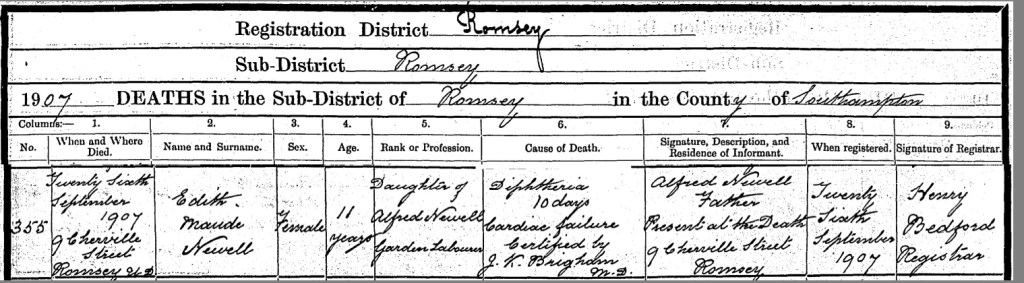 Registration District Romsey
Sub-District Romsey
1907 DEATHS in the Sub-District of Romsey in the County of Southampton
Columns:— 1. 2. 3. 4. 5. 6. 7. 8. 9.
No. When and Where Died. Name and Surname. Sex. Age. Rank or Profession. Cause of Death. Signature, Description, and Residence of Informant. When registered. Signature of Registrar.
355
Twenty Sixth
September
1907
9 Cherville
Street
Romsey U D
Edith
Maude
Newell
Female
11
years
Daughter of
Alfred Newell
Garden Labourer
Diphtheria
10 days
Cardiac failure
Certified by
J. K. Brigham
M.D.
Alfred Newell
Father
Present at the Death
9 Cherville Street
Romsey
Twenty
Sixth
September
1907
Henry
Bedford
Registrar